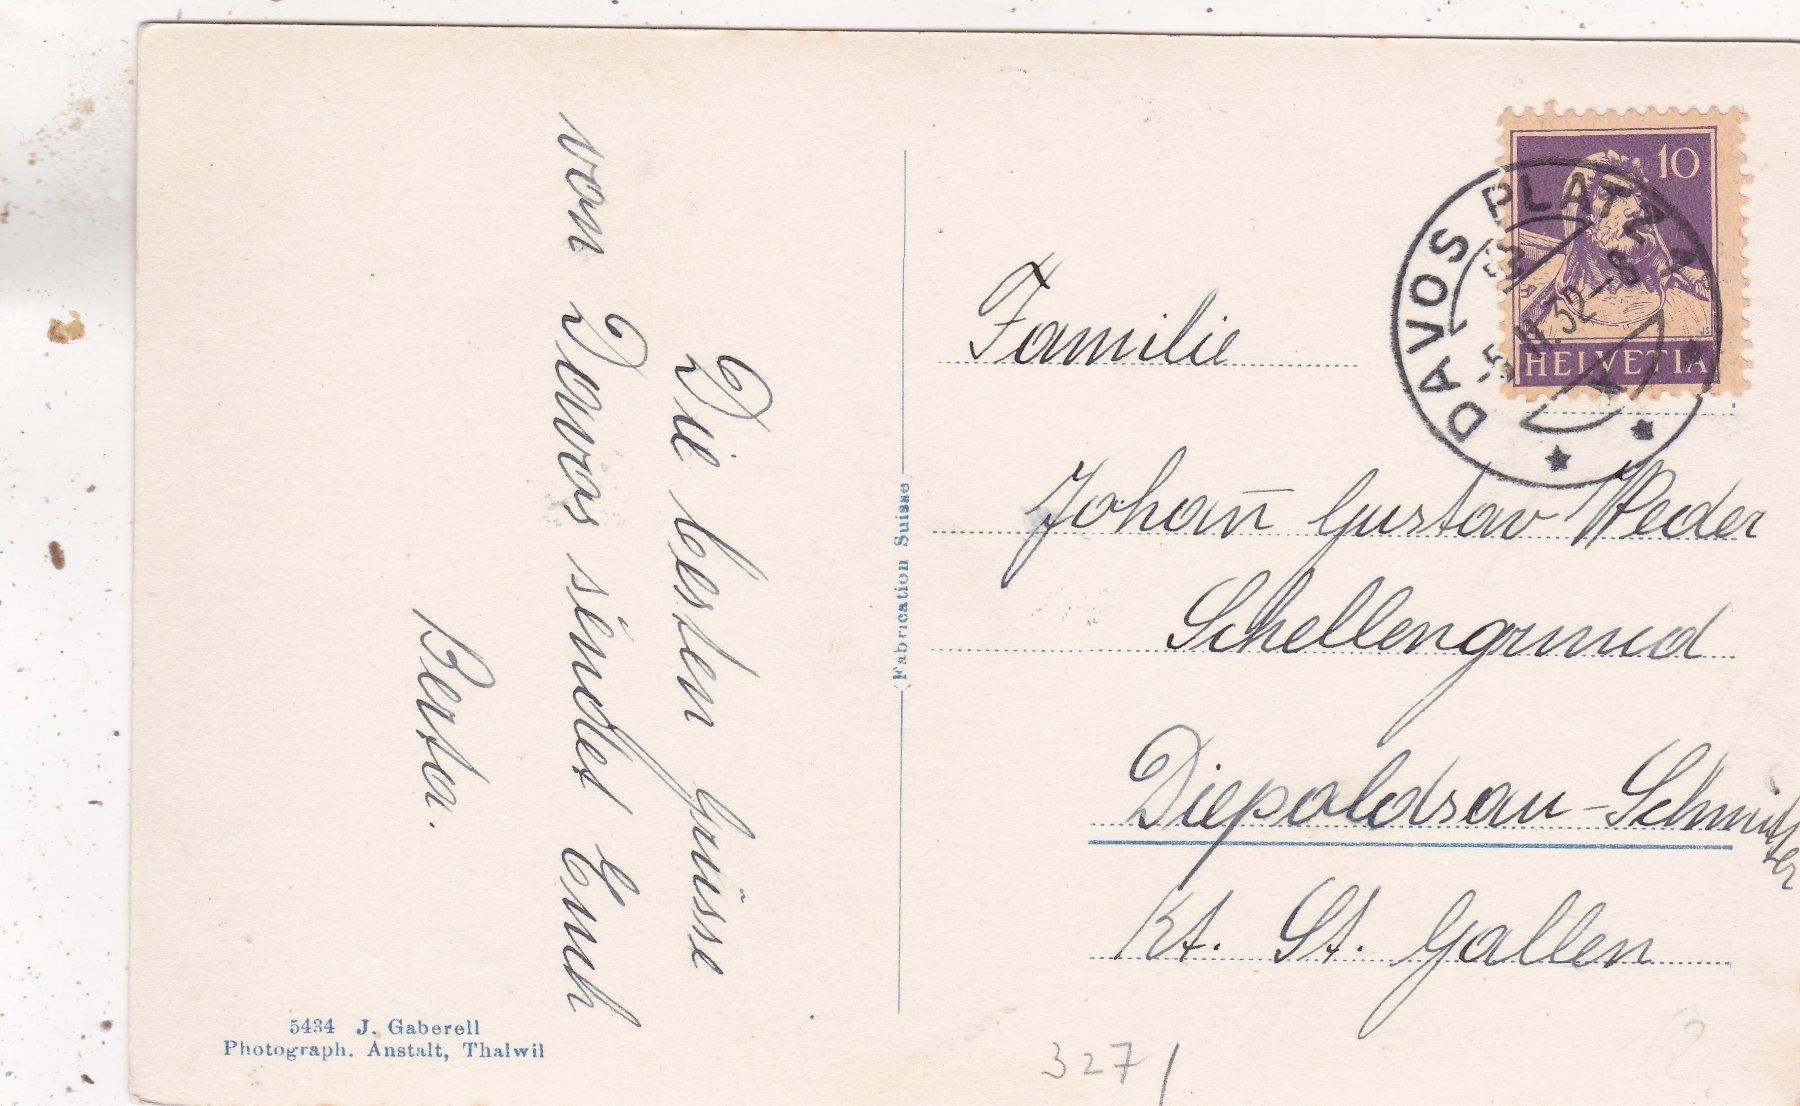 Die besten Grüsse
von Davos sendet Euch
Berta.
5434 J. Gaberell
Photograph. Anstalt, Thalwil
Fabrication Suisse
10
HELVETIA
DAVOS PLATZ 1
-5.II.32-8
Familie
Johan̄ Gustav Weder
Schellengrund
Diepoldsau-Schmitter
Kt. St. Gallen
327/